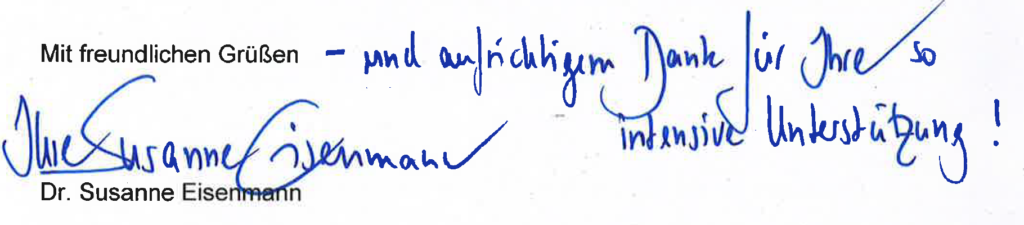 Mit freundlichen Grüßen – und aufrichtigem Dank für Ihre so
intensive Unterstützung!
Ihre Susanne Eisenmann
Dr. Susanne Eisenmann